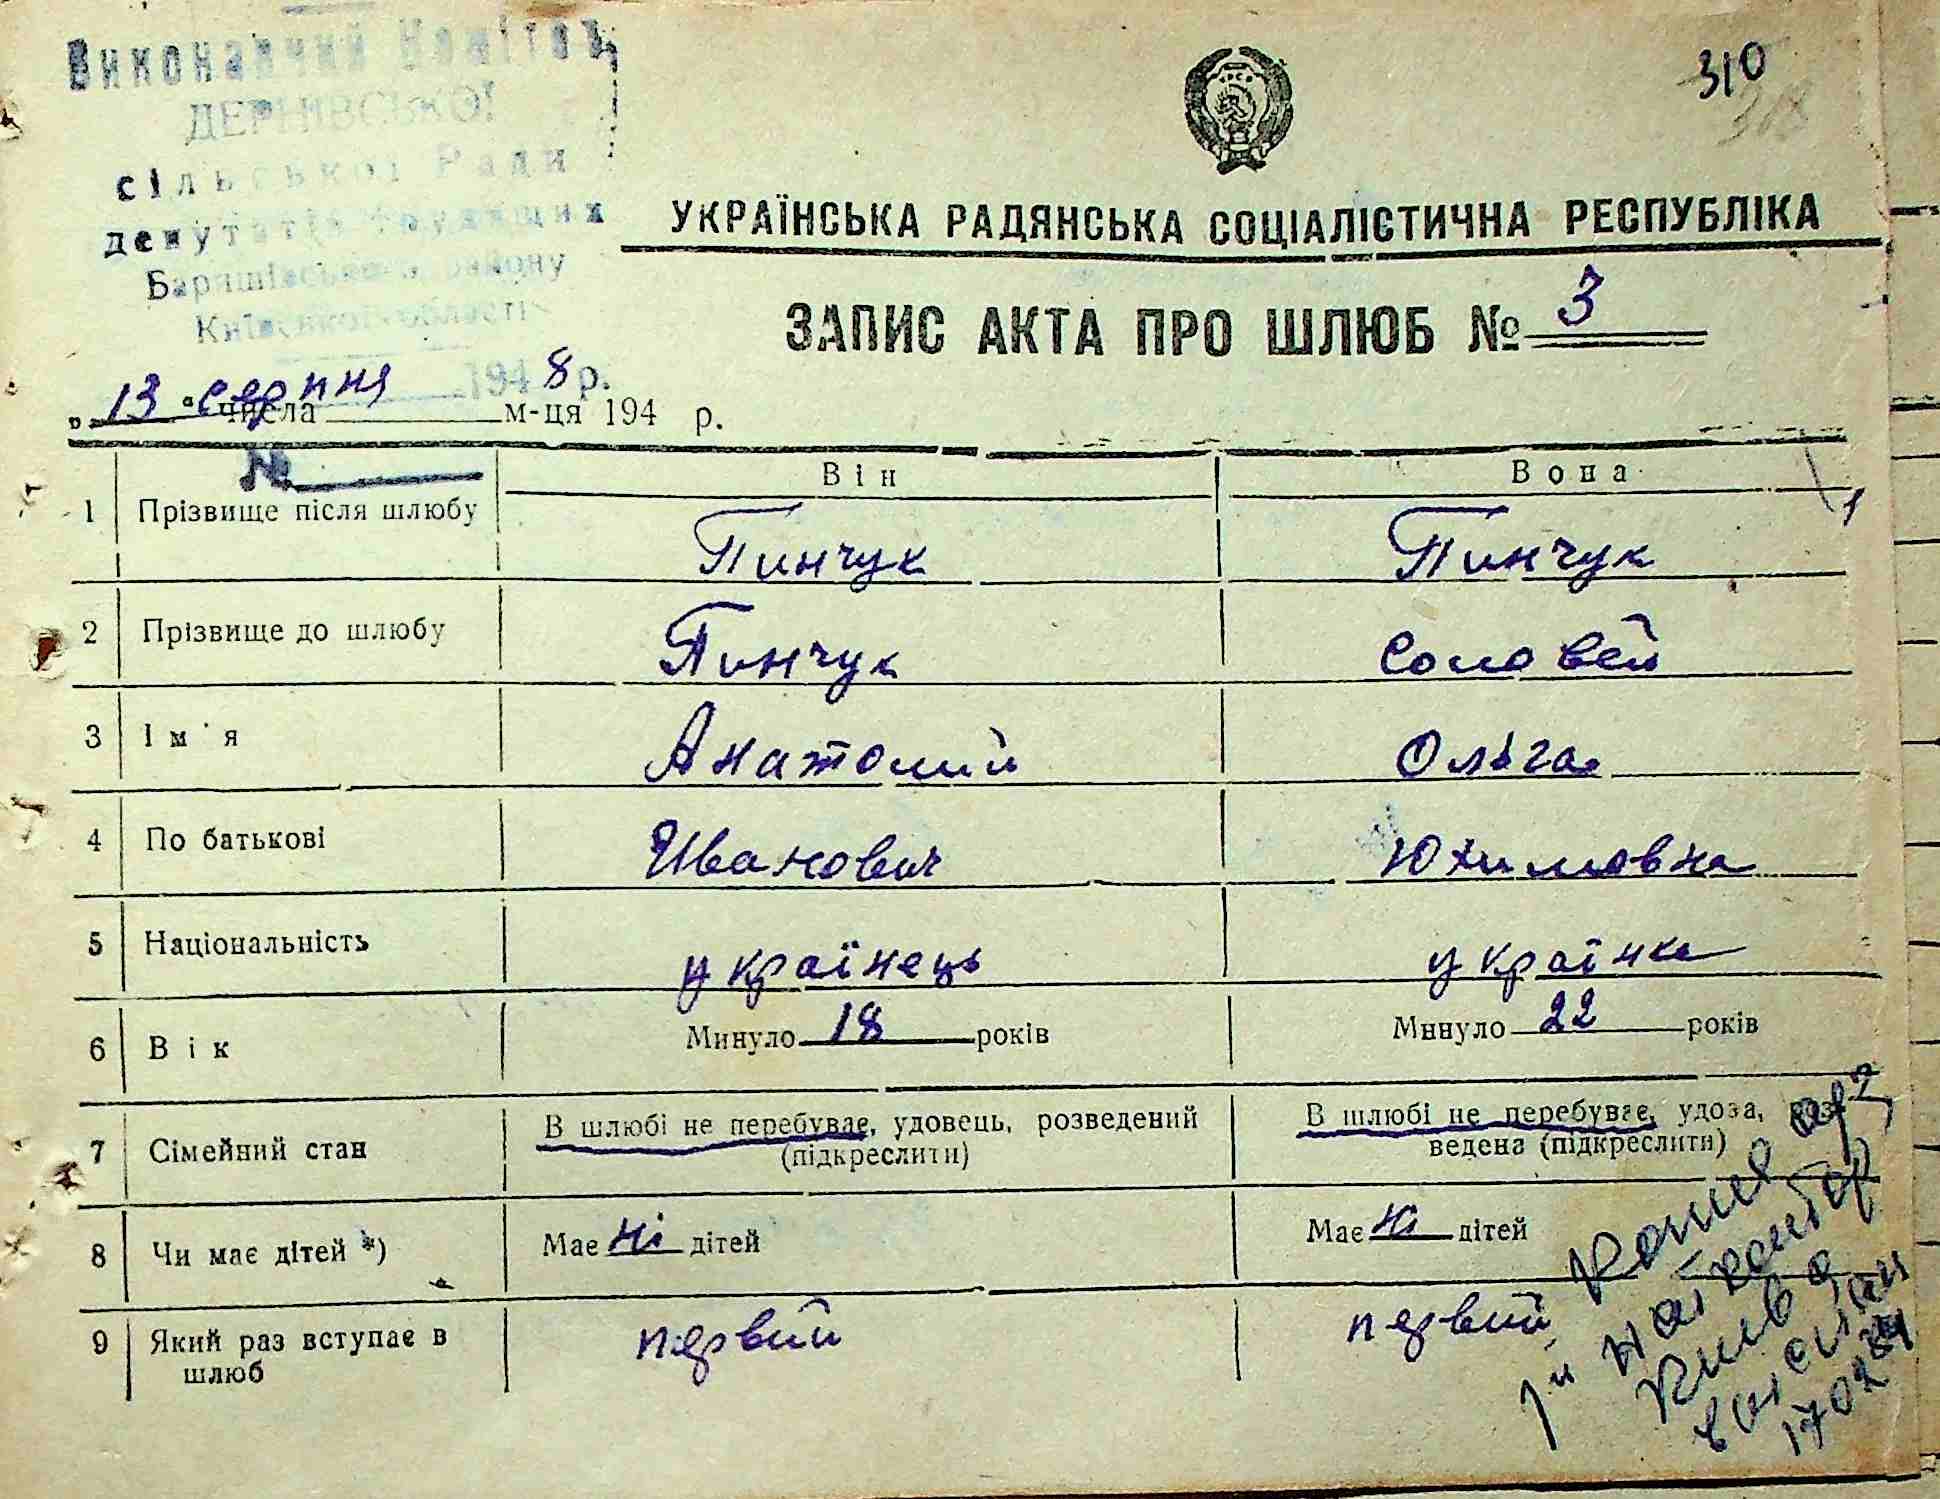 Виконавчий Комітет
ДЕРНІВСЬКОЇ
сільської Ради
депутатів трудящих
Баришівського району
Київської області
310
318
УКРАЇНСЬКА РАДЯНСЬКА СОЦІАЛІСТИЧНА РЕСПУБЛІКА
ЗАПИС АКТА ПРО ШЛЮБ № 3
1948 р.
„13“ серпня числа м-ця 194 р.
№
Він Вона
1 Прізвище після шлюбу Пинчук Пинчук
2 Прізвище до шлюбу Пинчук Соловей
3 Ім'я Анатолий Ольга
4 По батькові Иванович Юхимовна
5 Національність українець українка
6 Вік Минуло 18 років Минуло 22 років
7 Сімейний стан В шлюбі не перебуває, удовець, розведений (підкреслити) В шлюбі не перебуває, удова, роз-
ведена (підкреслити)
8 Чи має дітей *) Має ні дітей Має ні дітей
9 Який раз вступає в шлюб первий первий
Копия
Киева